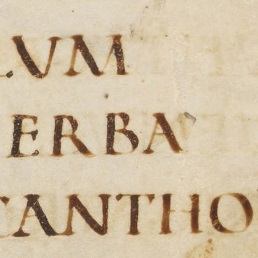 LVM
ERBA
CANTHO